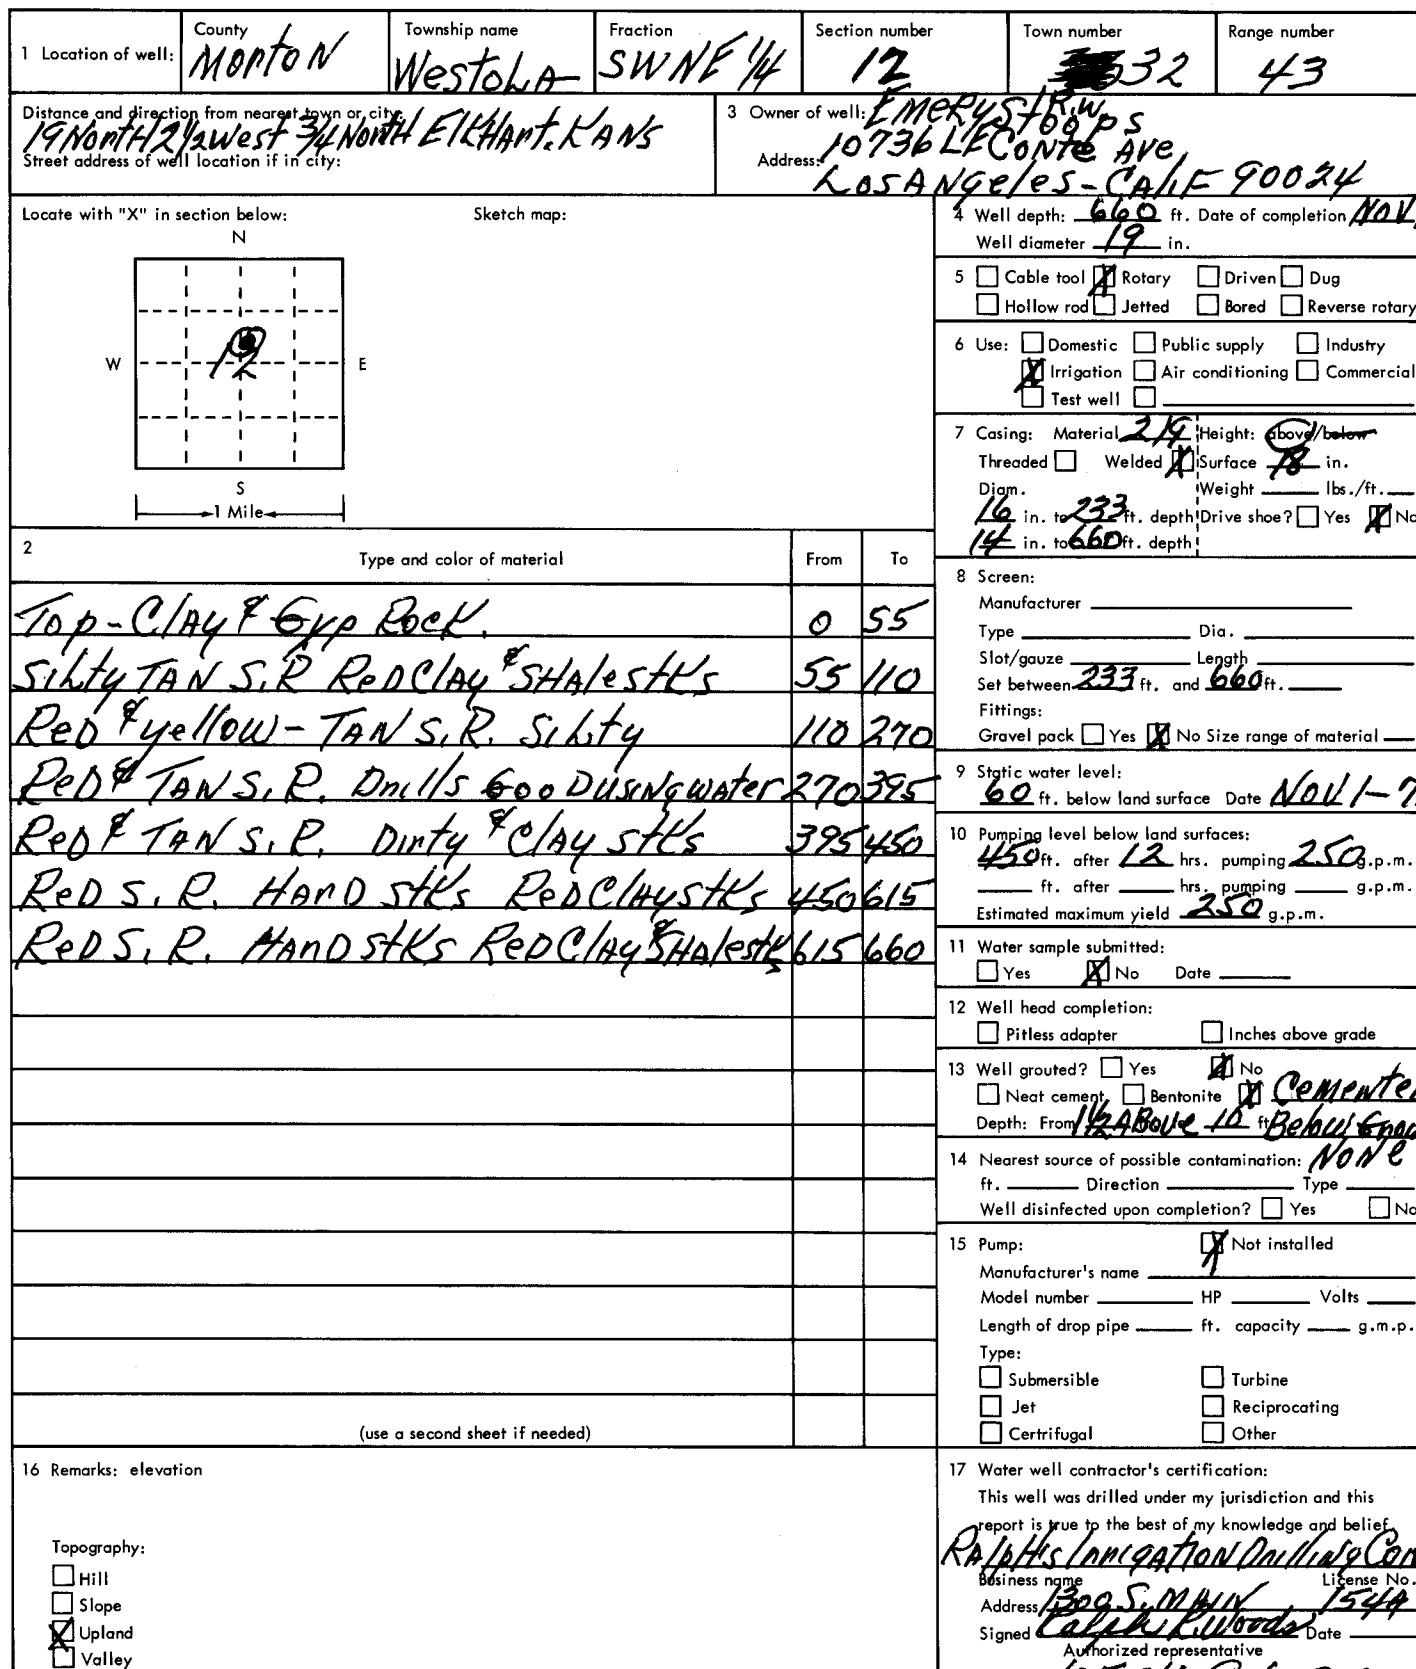 1 Location of well: County Township name Fraction Section number Town number Range number
Morton Westola SWNE 1/4 12 32 43
Distance and direction from nearest town or city:
19 North 2 1/2 West 3/4 North Elkhart. Kans
Street address of well location if in city:
3 Owner of well: Emery St R.W.
Stoops
Address: 10736 LeConte Ave
Los Angeles - Calif 90024
Locate with "X" in section below: Sketch map:
N
W E
12
S
1 Mile
4 Well depth: 660 ft. Date of completion Nov
Well diameter 19 in.
5 Cable tool X Rotary Driven Dug
Hollow rod Jetted Bored Reverse rotary
6 Use: Domestic Public supply Industry
X Irrigation Air conditioning Commercial
Test well
7 Casing: Material 219 Height: above/below
Threaded Welded X Surface 18 in.
Diam. Weight lbs./ft.
16 in. to 233 ft. depth Drive shoe? Yes X No
14 in. to 660 ft. depth
2 Type and color of material From To
Top-Clay & Gyp Rock. 0 55
Silty TAN S.R Red Clay & Shale stks 55 110
Red & yellow - TAN S.R. Silty 110 270
Red & TAN S.R. Drills Good using water 270 395
Red & TAN S.R. Dirty & Clay stks 395 450
Red S.R. Hard stks Red Clay stks 450 615
Red S.R. Hard stks Red Clay & Shale stks 615 660
(use a second sheet if needed)
8 Screen:
Manufacturer
Type Dia.
Slot/gauze Length
Set between 233 ft. and 660 ft.
Fittings:
Gravel pack Yes X No Size range of material
9 Static water level:
60 ft. below land surface Date Nov 1-7
10 Pumping level below land surfaces:
450 ft. after 12 hrs. pumping 250 g.p.m.
ft. after hrs. pumping g.p.m.
Estimated maximum yield 250 g.p.m.
11 Water sample submitted:
Yes X No Date
12 Well head completion:
Pitless adapter Inches above grade
13 Well grouted? Yes X No
Neat cement Bentonite X Cemente
Depth: From 1 1/2 Above 10 ft Below Grou
14 Nearest source of possible contamination: None
ft. Direction Type
Well disinfected upon completion? Yes No
15 Pump: X Not installed
Manufacturer's name
Model number HP Volts
Length of drop pipe ft. capacity g.m.p.
Type:
Submersible Turbine
Jet Reciprocating
Certrifugal Other
16 Remarks: elevation
Topography:
Hill
Slope
X Upland
Valley
17 Water well contractor's certification:
This well was drilled under my jurisdiction and this
report is true to the best of my knowledge and belief.
Ralph's Irrigation Drilling Con
Business name License No.
Address 1300 S. Main 154A
Signed Ralph R. Woods Date
Authorized representative